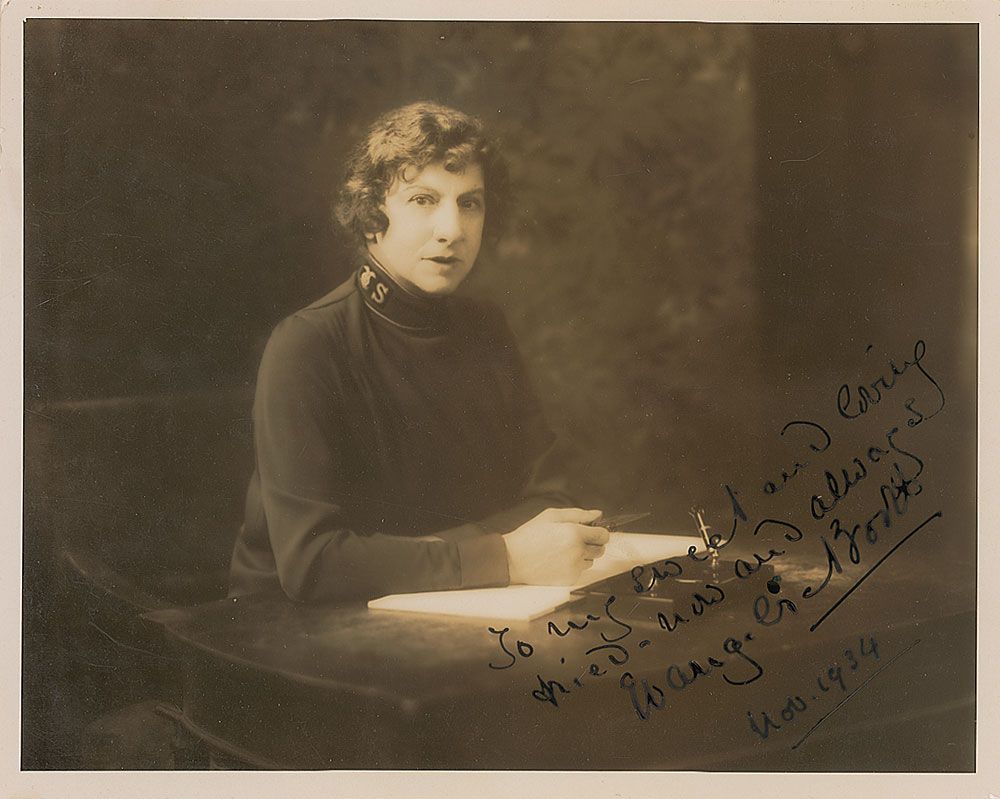 S
To my sweet and loving
tried - now and always
Evangeline Booth
Nov. 1934